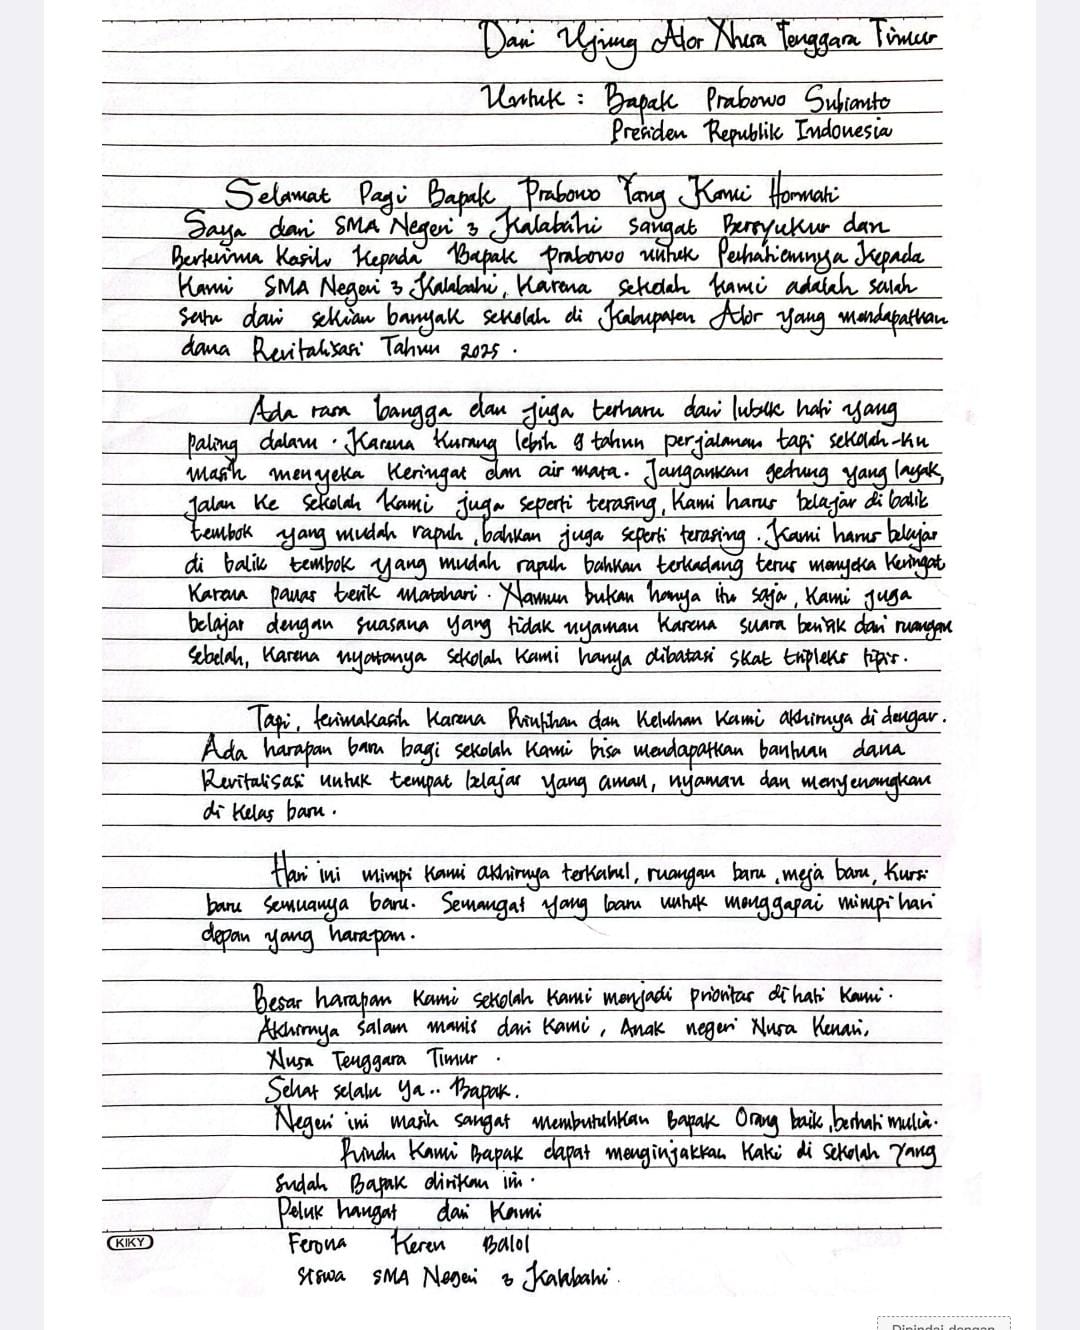 Dari Ujung Alor Nusa Tenggara Timur
Untuk : Bapak Prabowo Subianto
Presiden Republik Indonesia
Selamat Pagi Bapak Prabowo Yang Kami Hormati
Saya dari SMA Negeri 3 Kalabahi sangat Bersyukur dan
Berterima Kasih Kepada Bapak Prabowo untuk Perhatiannya Kepada
Kami SMA Negeri 3 Kalabahi, Karena sekolah kami adalah salah
satu dari sekian banyak sekolah di Kabupaten Alor yang mendapatkan
dana Revitalisasi Tahun 2025 .
Ada rasa bangga dan juga terharu dari lubuk hati yang
paling dalam . Karena Kurang lebih 9 tahun perjalanan tapi sekolah-Ku
masih menyeka Keringat dan air mata. Jangankan gedung yang layak,
jalan Ke sekolah Kami juga seperti terasing, Kami harus belajar di balik
tembok yang mudah rapuh, bahkan juga seperti terasing. Kami harus belajar
di balik tembok yang mudah rapuh bahkan terkadang terus menyeka Keringat
Karena panas terik matahari . Namun bukan hanya itu saja, Kami juga
belajar dengan suasana yang tidak nyaman Karena suara berisik dari ruangan
sebelah, Karena nyatanya sekolah Kami hanya dibatasi skat tripleks tipis.
Tapi, terimakasih Karena Rintihan dan Keluhan Kami akhirnya di dengar.
Ada harapan baru bagi sekolah Kami bisa mendapatkan bantuan dana
Revitalisasi untuk tempat belajar yang aman, nyaman dan menyenangkan
di Kelas baru .
Hari ini mimpi Kami akhirnya terkabul, ruangan baru, meja baru, Kursi
baru semuanya baru. Semangat yang baru untuk menggapai mimpi hari
depan yang harapan.
Besar harapan Kami sekolah Kami menjadi prioritas di hati Kami.
Akhirnya salam manis dari Kami, Anak negeri Nusa Kenari,
Nusa Tenggara Timur .
Sehat selalu ya.. Bapak.
Negeri ini masih sangat membutuhkan Bapak Orang baik, berhati mulia.
Rindu Kami Bapak dapat menginjakkan Kaki di sekolah Yang
sudah Bapak dirikan ini.
Peluk hangat dari Kami
KIKY
Ferona Keren Balol
siswa SMA Negeri 3 Kalabahi.